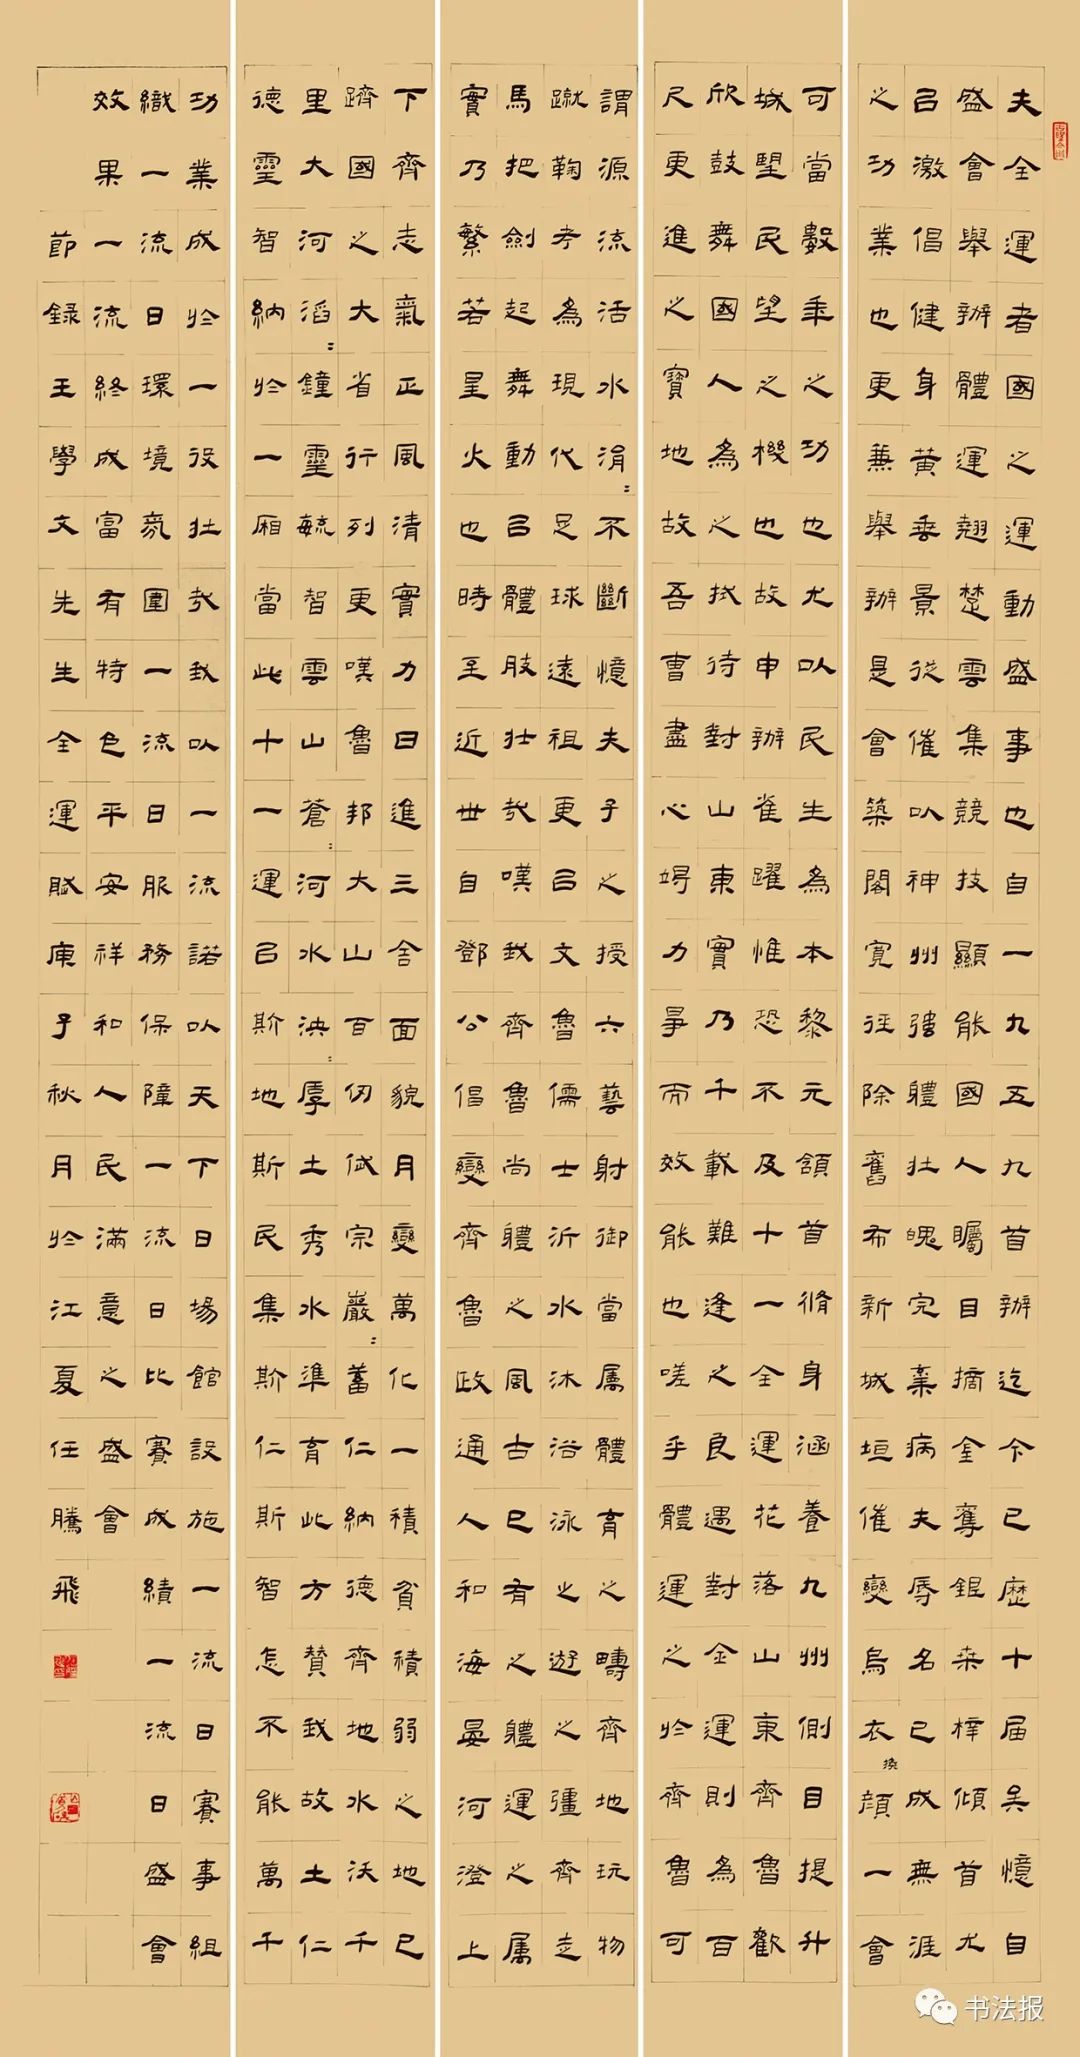 夫全運者國之運動盛事也自一九五九首辦迄今已歷十届矣憶自
盛會舉辦體運翹楚雲集競技顯能國人矚目摘金奪銀桒梓傾首尤
㠯激倡健身黃垂景從催㕥神州強軆壯魄完棄病夫辱名已成無涯
之功業也更兼舉辦是會築閣寬徑除舊布新城垣催變烏衣換顔一會
可當數年之功也尤㕥民生為本黎元頷首脩身涵養九州側目提升
城堅民望之機也故申辦雀躍惟恐不及十一全運花落山東齊魯歡
欣鼓舞國人為之拭待對山東實乃千載難逢之良遇對金運則為百
尺更進之寶地故吾曹盡心竭力爭而效能也嗟乎體運之於齊魯可
謂源流活水涓=不斷憶夫子之授六藝射御當属體育之疇齊地玩物
蹴鞠考為現代足球遠祖更㠯文魯儒士沂水沐浴泳之遊之疆齊走
馬把劍起舞動㠯體肢壯哉嘆我齊魯尚軆之風古已有之軆運之属
實乃繁若星火也時至近世自鄧公倡變齊魯政通人和海晏河澄上
下齊志氣正風清實力日進三舍面貌月變萬化一積貧積弱之地已
躋國之大省行列更嘆魯邦大山百仞岱宗巖=蓄仁納德齊地水沃千
里大河滔=鐘靈毓智雲山蒼=河水泱=厚土秀水準育此方贊我故土仁
德靈智納於一厢當此十一運㠯斯地斯民集斯仁斯智怎不能萬千
功業成於一役壯哉我㕥一流諾㕥天下日場館設施一流日賽事組
織一流日環境氛圍一流日服務保障一流日比賽成績一流日盛會
效果一流終成富有特色平安祥和人民滿意之盛會
節録王學文先生全運賦庚子秋月於江夏任騰飛
书法报